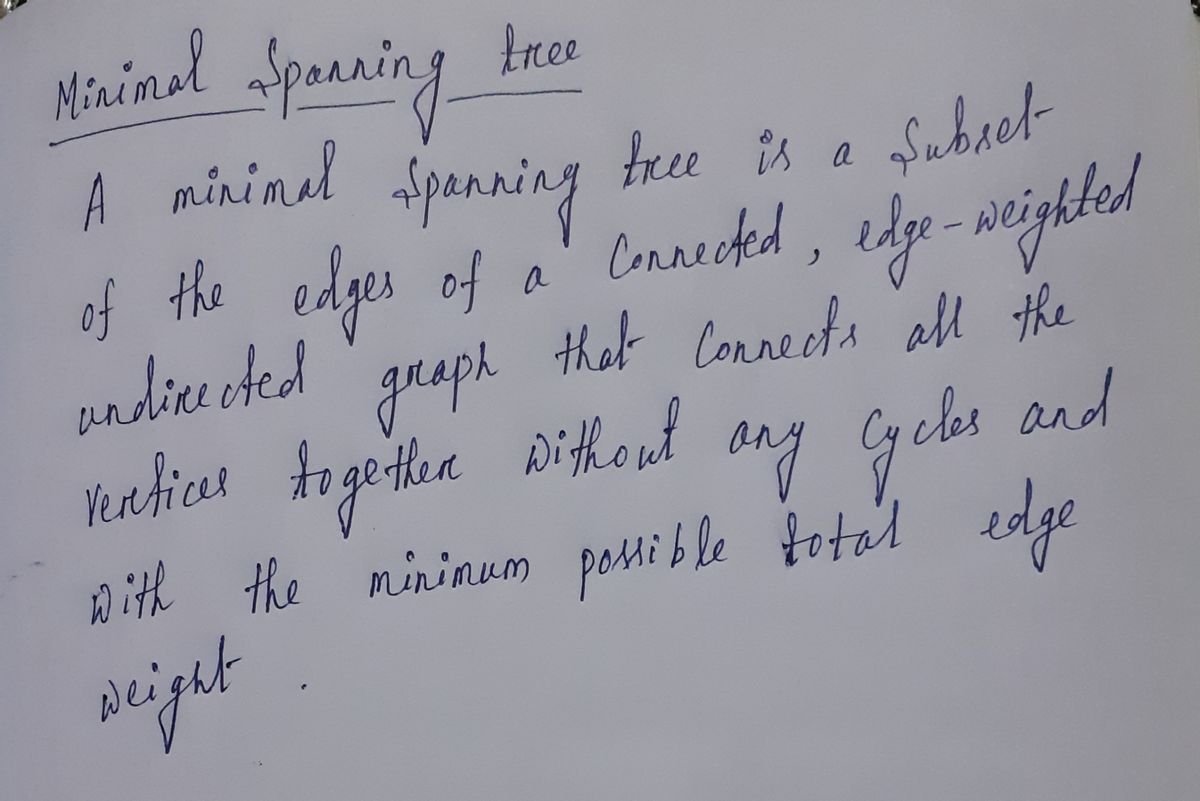 Minimal Spanning tree
A minimal Spanning tree is a Subset
of the edges of a Connected, edge-weighted
undirected graph that Connects all the
vertices together without any Cycles and
with the minimum possible total edge
weight.